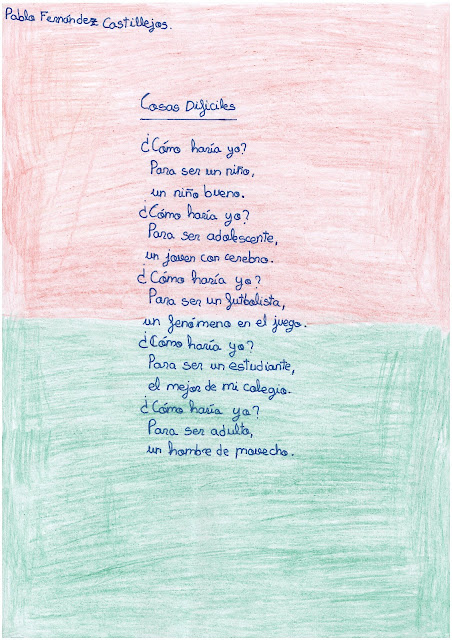 Pablo Fernández Castillejos.
Cosas Difíciles
¿Cómo haría yo?
Para ser un niño,
un niño bueno.
¿Cómo haría yo?
Para ser adolescente,
un joven con cerebro.
¿Cómo haría yo?
Para ser un futbolista,
un fenómeno en el juego.
¿Cómo haría yo?
Para ser un estudiante,
el mejor de mi colegio.
¿Cómo haría yo?
Para ser adulto,
un hombre de provecho.